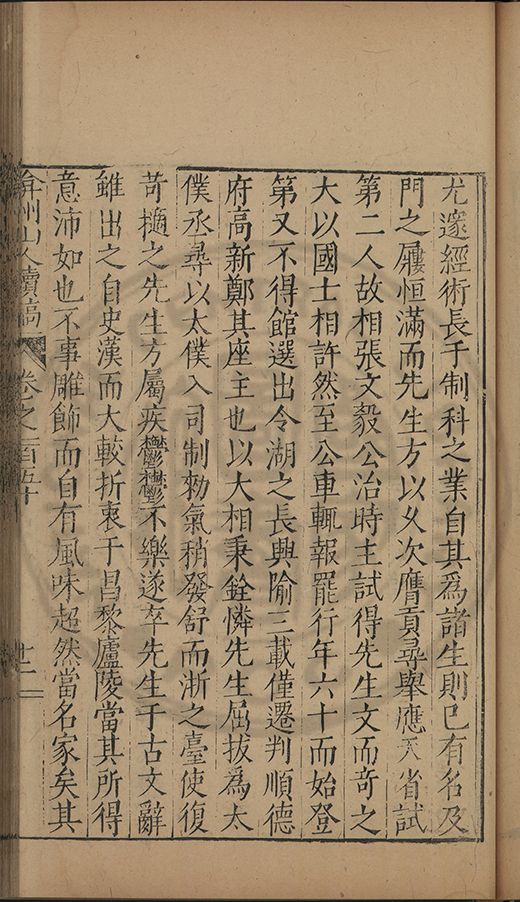 尤邃經術長于制科之業自其爲諸生則已有名及
門之屨恒滿而先生方以久次膺貢尋舉應天省試
第二人故相張文毅公治時主試得先生文而奇之
大以國士相許然至公車輒報罷行年六十而始登
第又不得館選出令湖之長興隃三載僅遷判順德
府高新鄭其座主也以大相秉銓憐先生屈拔爲太
僕丞尋以太僕入司制勑氣稍發舒而浙之臺使復
苛擿之先生方屬疾鬱鬱不樂遂卒先生于古文辭
雖出之自史漢而大較折衷于昌黎廬陵當其所得
意沛如也不事雕飾而自有風味超然當名家矣其
弇州山人續稿 卷之一百五十 廿二